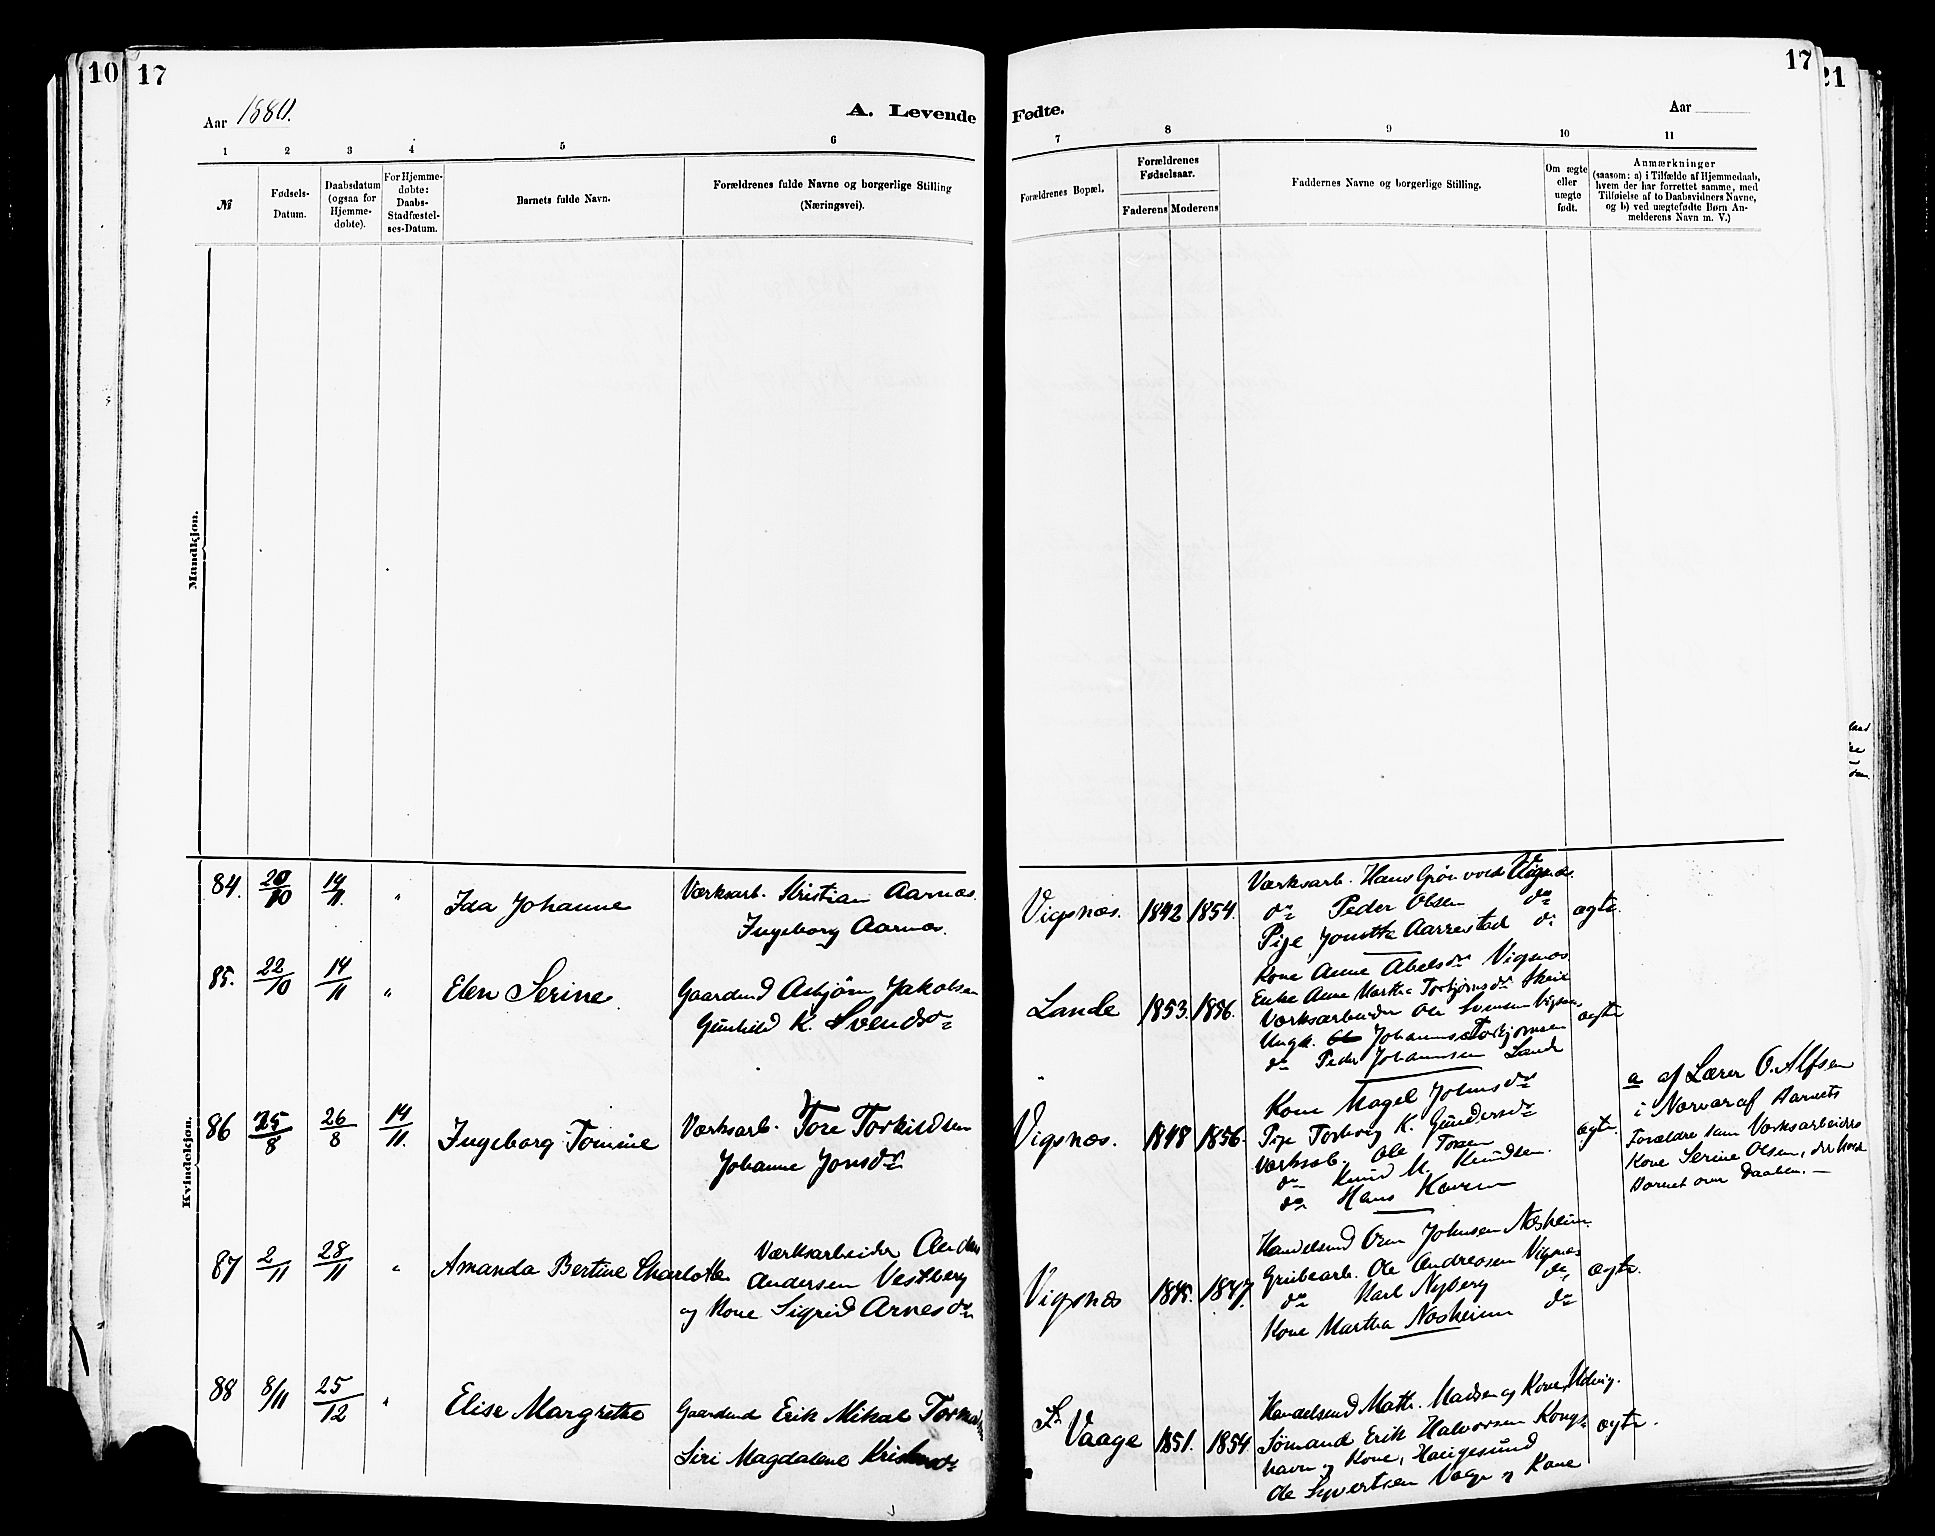 10 17
17 21
Aar 1880.
A. Levende Fødte.
Aar
1 2 3 4 5 6 7 8 9 10 11
№
Fødsels-
Datum.
Daabsdatum
(ogsaa for
Hjemme-
døbte).
For Hjemme-
døbte:
Daabs-
Stadfæstel-
ses-Datum.
Barnets fulde Navn.
Forældrenes fulde Navne og borgerlige Stilling
(Næringsvei).
Forældrenes Bopæl.
Forældrenes
Fødselsaar.
Faderens Moderens
Faddernes Navne og borgerlige Stilling.
Om ægte
eller
uægte
født.
Anmærkninger
(saasom: a) i Tilfælde af Hjemmedaab,
hvem der har forrettet samme, med
Tilføielse af to Daabsvidners Navne,
og b) ved uægtefødte Børn An-
melderens Navn m. V.)
Mandkjøn.
Kvindekjøn.
84. 20/10 14/11 "
Ida Johanne
Værksarb. Kristian Aarnæs.
Ingeborg Aarnæs.
Vigsnæs. 1842 1854.
Værksarb. Hans Grönvold Vigsnæs
do Peder Olsen do
Pige Aarrestad do
ægte.
85. 22/10 14/11 "
Elen Serine
Gaardmd Asbjörn Jakobsen
Gunhild K. Svendsdr
Lande 1853. 1856.
Kone Anne Abelsdr Vigsnæs
Enke Anne Martha Torbjørnsdr
Værksarbeider Ole Svensen Vigsnæs
Ungk. Johannes Torbjørnsen
do Peder Johannesen Lande
ægte
86 25/8 26/8 14/11.
Ingeborg Tomine
Værksarb. Tore Torkildsen
Johanne Jonsdr
Vigsnæs. 1848 1856.
Kone Magel Johnsdr
Pige Torborg K. Gundersdr
Værksarb. Ole Tosen
do Knud M. Knudsen.
do Hans
ægte.
a af Lærer O. Alfsen
i Nærvær af Barnets
Forældre samt Værksarbeiders
Kone Serine Olsen, der holdt
Barnet over Daaben. —
87 2/11 28/11 "
Amanda Bertine Charlotte
Værksarbeider
Andersen Vestberg
og Kone Sigrid Arnesdr
Vigsnæs 1845. 1847.
Handelsmd Johnsen Næsheim
Grubearb. Ole Andreasen Vigsnæs
do Karl Nyberg do
Kone Martha Næsheim do
ægte.
88 8/11 25/12 "
Elise Margrethe
Gaardmd Erik Mikal
Siri Magdalene
Vaage 1851. 1854.
Handelsmd Math. Madsen og Kone,
Sømand Erik Halvorsen Kong-
havn og Kone, Haugesund
Ole Syvertsen Vaage og Kone
ægte.